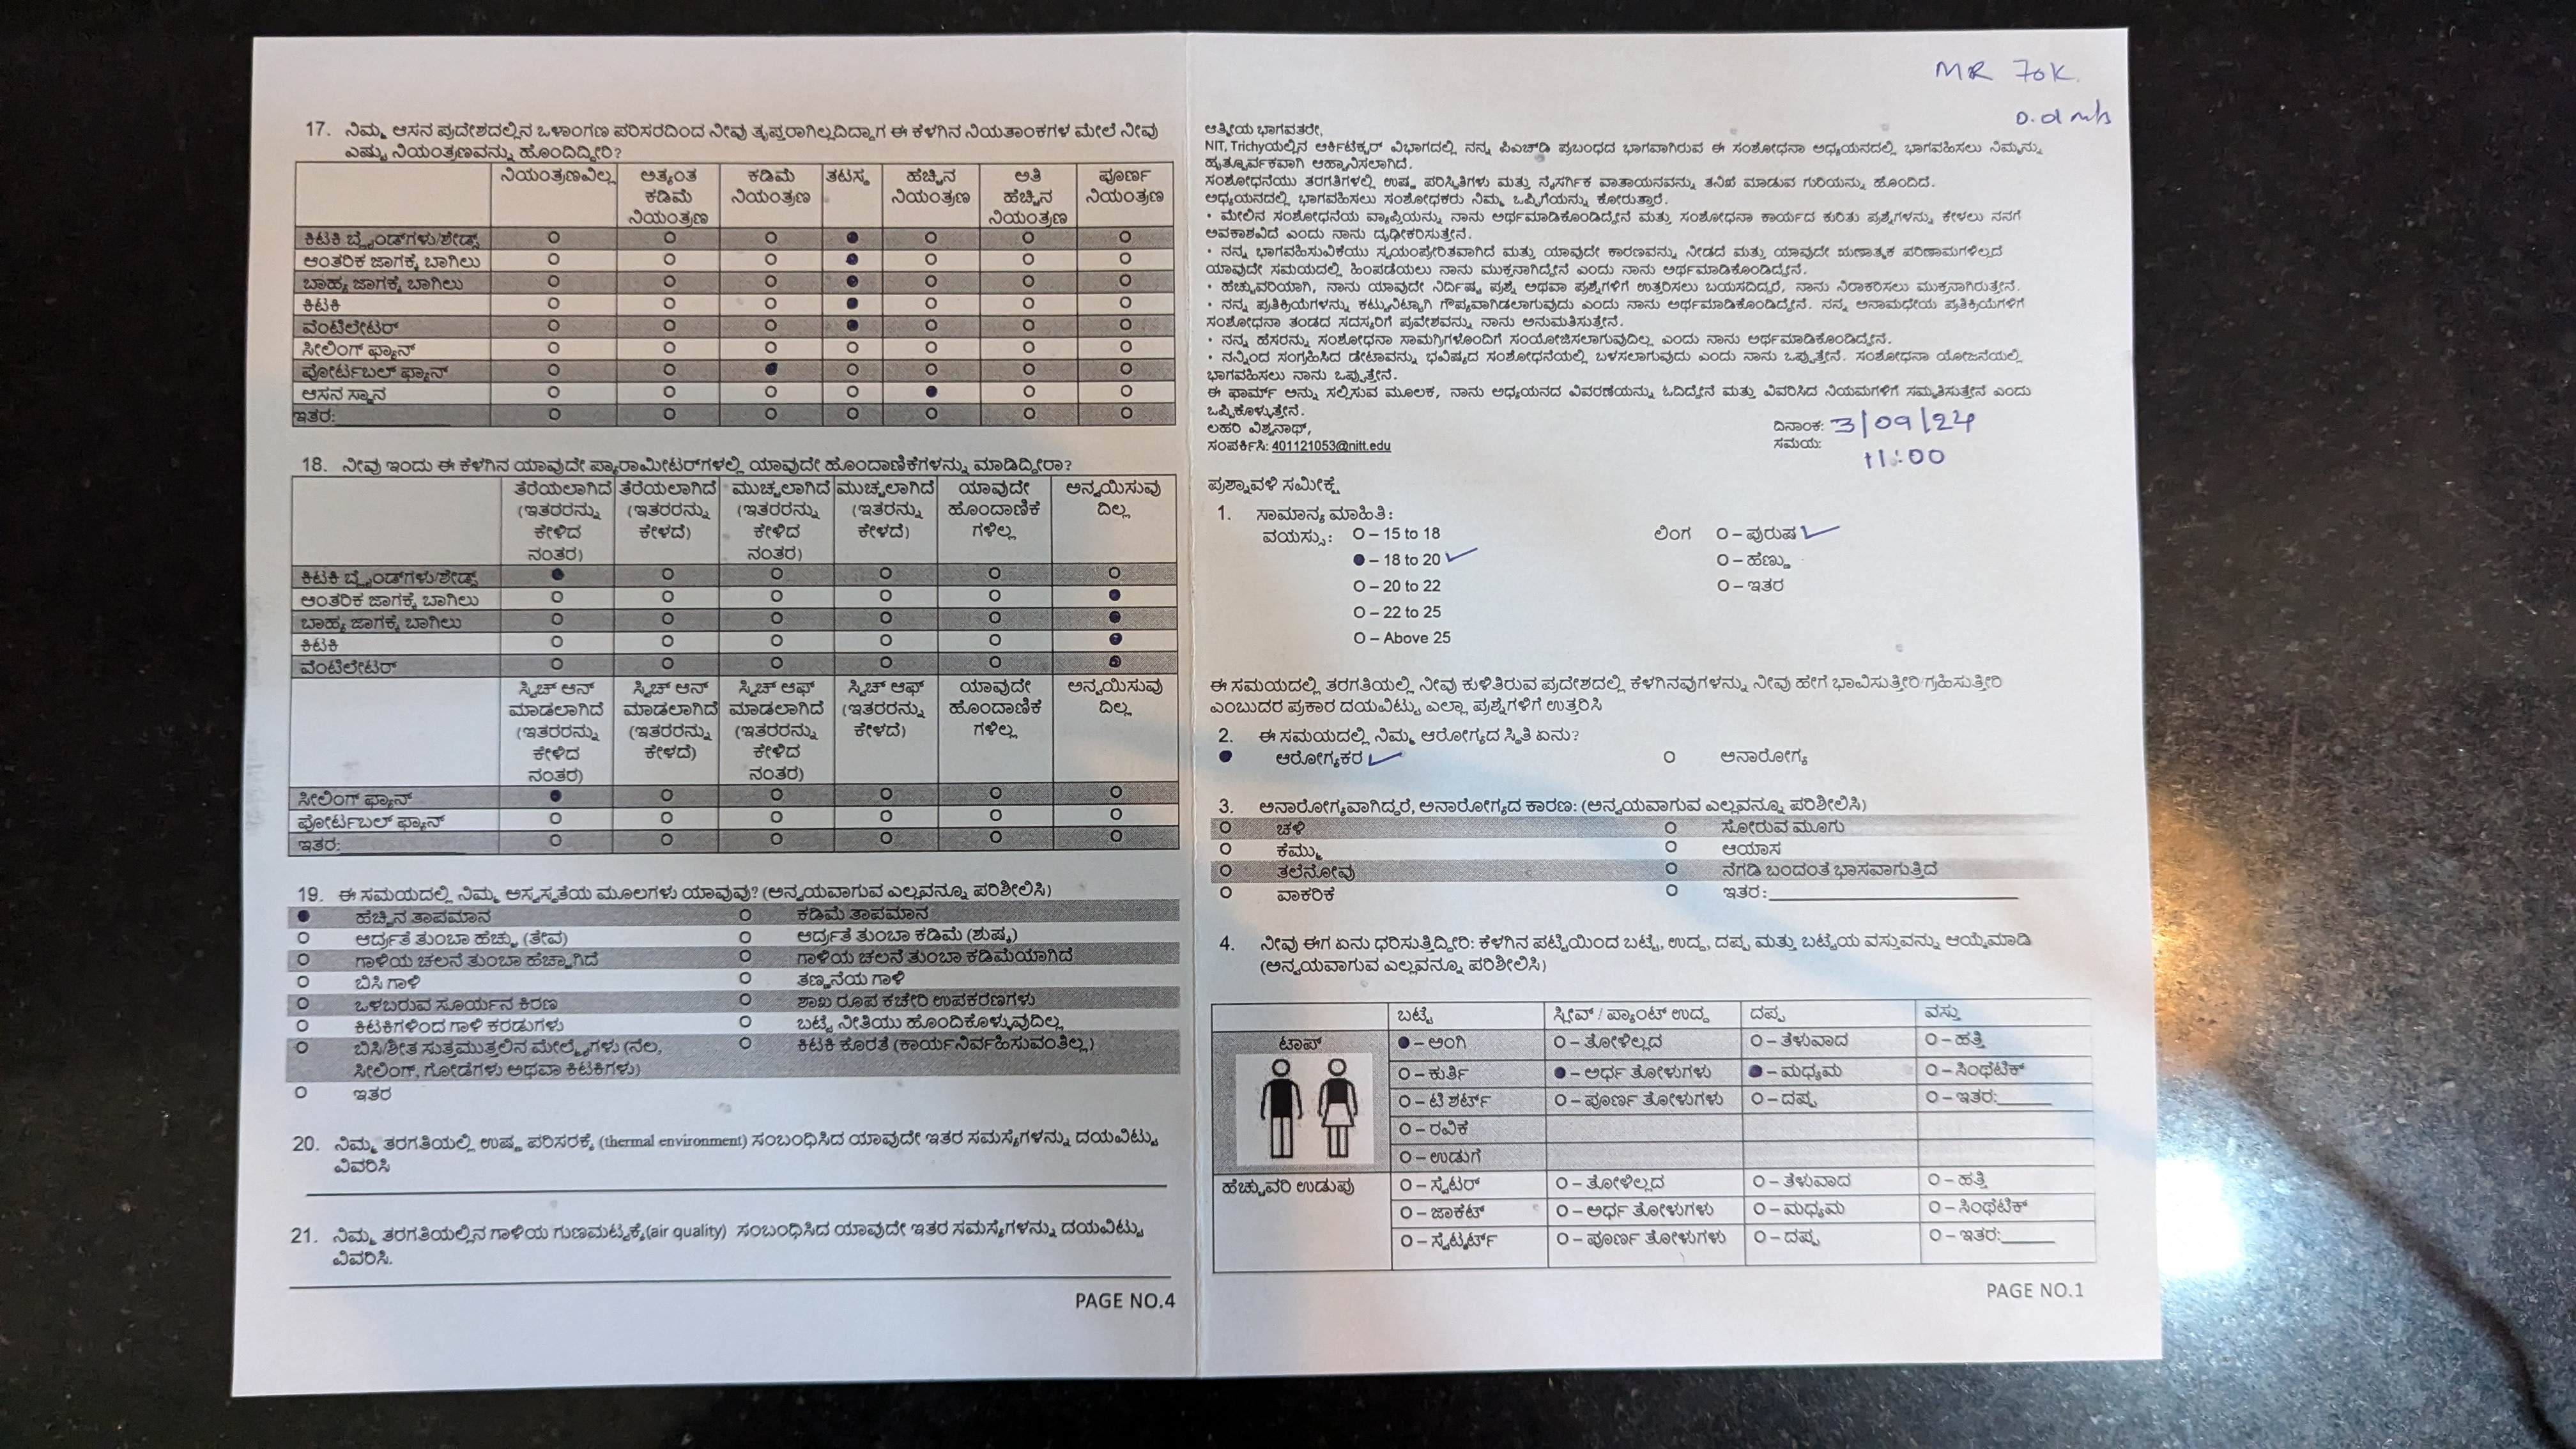 17. ನಿಮ್ಮ ಆಸನ ಪ್ರದೇಶದಲ್ಲಿನ ಒಳಾಂಗಣ ಪರಿಸರದಿಂದ ನೀವು ತೃಪ್ತರಾಗಿಲ್ಲದಿದ್ದಾಗ ಈ ಕೆಳಗಿನ ನಿಯತಾಂಕಗಳ ಮೇಲೆ ನೀವು
ಎಷ್ಟು ನಿಯಂತ್ರಣವನ್ನು ಹೊಂದಿದ್ದೀರಿ?
ನಿಯಂತ್ರಣವಿಲ್ಲ ಅತ್ಯಂತ ಕಡಿಮೆ ನಿಯಂತ್ರಣ ಕಡಿಮೆ ನಿಯಂತ್ರಣ ತಟಸ್ಥ ಹೆಚ್ಚಿನ ನಿಯಂತ್ರಣ ಅತಿ ಹೆಚ್ಚಿನ ನಿಯಂತ್ರಣ ಪೂರ್ಣ ನಿಯಂತ್ರಣ
ಕಿಟಕಿ ಬ್ಲೈಂಡ್‌ಗಳು/ಶೇಡ್ಸ್
ಆಂತರಿಕ ಜಾಗಕ್ಕೆ ಬಾಗಿಲು
ಬಾಹ್ಯ ಜಾಗಕ್ಕೆ ಬಾಗಿಲು
ಕಿಟಕಿ
ವೆಂಟಿಲೇಟರ್
ಸೀಲಿಂಗ್ ಫ್ಯಾನ್
ಪೋರ್ಟಬಲ್ ಫ್ಯಾನ್
ಆಸನ ಸ್ಥಾನ
ಇತರ:
18. ನೀವು ಇಂದು ಈ ಕೆಳಗಿನ ಯಾವುದೇ ಪ್ಯಾರಾಮೀಟರ್‌ಗಳಲ್ಲಿ ಯಾವುದೇ ಹೊಂದಾಣಿಕೆಗಳನ್ನು ಮಾಡಿದ್ದೀರಾ?
ತೆರೆಯಲಾಗಿದೆ (ಇತರರನ್ನು ಕೇಳಿದ ನಂತರ) ತೆರೆಯಲಾಗಿದೆ (ಇತರರನ್ನು ಕೇಳದೆ) ಮುಚ್ಚಲಾಗಿದೆ (ಇತರರನ್ನು ಕೇಳಿದ ನಂತರ) ಮುಚ್ಚಲಾಗಿದೆ (ಇತರನ್ನು ಕೇಳದೆ) ಯಾವುದೇ ಹೊಂದಾಣಿಕೆ ಗಳಿಲ್ಲ ಅನ್ವಯಿಸುವು ದಿಲ್ಲ
ಕಿಟಕಿ ಬ್ಲೈಂಡ್‌ಗಳು/ಶೇಡ್ಸ್
ಆಂತರಿಕ ಜಾಗಕ್ಕೆ ಬಾಗಿಲು
ಬಾಹ್ಯ ಜಾಗಕ್ಕೆ ಬಾಗಿಲು
ಕಿಟಕಿ
ವೆಂಟಿಲೇಟರ್
ಸ್ವಿಚ್ ಆನ್ ಮಾಡಲಾಗಿದೆ (ಇತರರನ್ನು ಕೇಳಿದ ನಂತರ) ಸ್ವಿಚ್ ಆನ್ ಮಾಡಲಾಗಿದೆ (ಇತರರನ್ನು ಕೇಳದೆ) ಸ್ವಿಚ್ ಆಫ್ ಮಾಡಲಾಗಿದೆ (ಇತರರನ್ನು ಕೇಳಿದ ನಂತರ) ಸ್ವಿಚ್ ಆಫ್ (ಇತರರನ್ನು ಕೇಳದೆ) ಯಾವುದೇ ಹೊಂದಾಣಿಕೆ ಗಳಿಲ್ಲ ಅನ್ವಯಿಸುವು ದಿಲ್ಲ
ಸೀಲಿಂಗ್ ಫ್ಯಾನ್
ಪೋರ್ಟಬಲ್ ಫ್ಯಾನ್
ಇತರ:
19. ಈ ಸಮಯದಲ್ಲಿ ನಿಮ್ಮ ಅಸ್ವಸ್ಥತೆಯ ಮೂಲಗಳು ಯಾವುವು? (ಅನ್ವಯವಾಗುವ ಎಲ್ಲವನ್ನೂ ಪರಿಶೀಲಿಸಿ)
ಹೆಚ್ಚಿನ ತಾಪಮಾನ ಕಡಿಮೆ ತಾಪಮಾನ
ಆರ್ದ್ರತೆ ತುಂಬಾ ಹೆಚ್ಚು (ತೇವ) ಆರ್ದ್ರತೆ ತುಂಬಾ ಕಡಿಮೆ (ಶುಷ್ಕ)
ಗಾಳಿಯ ಚಲನೆ ತುಂಬಾ ಹೆಚ್ಚಾಗಿದೆ ಗಾಳಿಯ ಚಲನೆ ತುಂಬಾ ಕಡಿಮೆಯಾಗಿದೆ
ಬಿಸಿ ಗಾಳಿ ತಣ್ಣನೆಯ ಗಾಳಿ
ಒಳಬರುವ ಸೂರ್ಯನ ಕಿರಣ ಶಾಖ ರೂಪ ಕಚೇರಿ ಉಪಕರಣಗಳು
ಕಿಟಕಿಗಳಿಂದ ಗಾಳಿ ಕರಡುಗಳು ಬಟ್ಟೆ ನೀತಿಯು ಹೊಂದಿಕೊಳ್ಳುವುದಿಲ್ಲ
ಬಿಸಿ/ಶೀತ ಸುತ್ತಮುತ್ತಲಿನ ಮೇಲ್ಮೈಗಳು (ನೆಲ, ಕಿಟಕಿ ಕೊರತೆ (ಕಾರ್ಯನಿರ್ವಹಿಸುವಂತಿಲ್ಲ)
ಸೀಲಿಂಗ್, ಗೋಡೆಗಳು ಅಥವಾ ಕಿಟಕಿಗಳು)
ಇತರ
20. ನಿಮ್ಮ ತರಗತಿಯಲ್ಲಿ ಉಷ್ಣ ಪರಿಸರಕ್ಕೆ (thermal environment) ಸಂಬಂಧಿಸಿದ ಯಾವುದೇ ಇತರ ಸಮಸ್ಯೆಗಳನ್ನು ದಯವಿಟ್ಟು
ವಿವರಿಸಿ
21. ನಿಮ್ಮ ತರಗತಿಯಲ್ಲಿನ ಗಾಳಿಯ ಗುಣಮಟ್ಟಕ್ಕೆ(air quality) ಸಂಬಂಧಿಸಿದ ಯಾವುದೇ ಇತರ ಸಮಸ್ಯೆಗಳನ್ನು ದಯವಿಟ್ಟು
ವಿವರಿಸಿ.
PAGE NO.4
MR 70K.
ಆತ್ಮೀಯ ಭಾಗವತರೇ,
NIT, Trichyಯಲ್ಲಿನ ಆರ್ಕಿಟೆಕ್ಚರ್ ವಿಭಾಗದಲ್ಲಿ ನನ್ನ ಪಿಎಚ್‌ಡಿ ಪ್ರಬಂಧದ ಭಾಗವಾಗಿರುವ ಈ ಸಂಶೋಧನಾ ಅಧ್ಯಯನದಲ್ಲಿ ಭಾಗವಹಿಸಲು ನಿಮ್ಮನ್ನು
ಹೃತ್ಪೂರ್ವಕವಾಗಿ ಆಹ್ವಾನಿಸಲಾಗಿದೆ.
ಸಂಶೋಧನೆಯು ತರಗತಿಗಳಲ್ಲಿ ಉಷ್ಣ ಪರಿಸ್ಥಿತಿಗಳು ಮತ್ತು ನೈಸರ್ಗಿಕ ವಾತಾಯನವನ್ನು ತನಿಖೆ ಮಾಡುವ ಗುರಿಯನ್ನು ಹೊಂದಿದೆ.
ಅಧ್ಯಯನದಲ್ಲಿ ಭಾಗವಹಿಸಲು ಸಂಶೋಧಕರು ನಿಮ್ಮ ಒಪ್ಪಿಗೆಯನ್ನು ಕೋರುತ್ತಾರೆ.
• ಮೇಲಿನ ಸಂಶೋಧನೆಯ ವ್ಯಾಪ್ತಿಯನ್ನು ನಾನು ಅರ್ಥಮಾಡಿಕೊಂಡಿದ್ದೇನೆ ಮತ್ತು ಸಂಶೋಧನಾ ಕಾರ್ಯದ ಕುರಿತು ಪ್ರಶ್ನೆಗಳನ್ನು ಕೇಳಲು ನನಗೆ
ಅವಕಾಶವಿದೆ ಎಂದು ನಾನು ದೃಢೀಕರಿಸುತ್ತೇನೆ.
• ನನ್ನ ಭಾಗವಹಿಸುವಿಕೆಯು ಸ್ವಯಂಪ್ರೇರಿತವಾಗಿದೆ ಮತ್ತು ಯಾವುದೇ ಕಾರಣವನ್ನು ನೀಡದೆ ಮತ್ತು ಯಾವುದೇ ಋಣಾತ್ಮಕ ಪರಿಣಾಮಗಳಿಲ್ಲದೆ
ಯಾವುದೇ ಸಮಯದಲ್ಲಿ ಹಿಂಪಡೆಯಲು ನಾನು ಮುಕ್ತನಾಗಿದ್ದೇನೆ ಎಂದು ನಾನು ಅರ್ಥಮಾಡಿಕೊಂಡಿದ್ದೇನೆ.
• ಹೆಚ್ಚುವರಿಯಾಗಿ, ನಾನು ಯಾವುದೇ ನಿರ್ದಿಷ್ಟ ಪ್ರಶ್ನೆ ಅಥವಾ ಪ್ರಶ್ನೆಗಳಿಗೆ ಉತ್ತರಿಸಲು ಬಯಸದಿದ್ದರೆ, ನಾನು ನಿರಾಕರಿಸಲು ಮುಕ್ತನಾಗಿರುತ್ತೇನೆ.
• ನನ್ನ ಪ್ರತಿಕ್ರಿಯೆಗಳನ್ನು ಕಟ್ಟುನಿಟ್ಟಾಗಿ ಗೌಪ್ಯವಾಗಿಡಲಾಗುವುದು ಎಂದು ನಾನು ಅರ್ಥಮಾಡಿಕೊಂಡಿದ್ದೇನೆ. ನನ್ನ ಅನಾಮಧೇಯ ಪ್ರತಿಕ್ರಿಯೆಗಳಿಗೆ
ಸಂಶೋಧನಾ ತಂಡದ ಸದಸ್ಯರಿಗೆ ಪ್ರವೇಶವನ್ನು ನಾನು ಅನುಮತಿಸುತ್ತೇನೆ.
• ನನ್ನ ಹೆಸರನ್ನು ಸಂಶೋಧನಾ ಸಾಮಗ್ರಿಗಳೊಂದಿಗೆ ಸಂಯೋಜಿಸಲಾಗುವುದಿಲ್ಲ ಎಂದು ನಾನು ಅರ್ಥಮಾಡಿಕೊಂಡಿದ್ದೇನೆ.
• ನನ್ನಿಂದ ಸಂಗ್ರಹಿಸಿದ ಡೇಟಾವನ್ನು ಭವಿಷ್ಯದ ಸಂಶೋಧನೆಯಲ್ಲಿ ಬಳಸಲಾಗುವುದು ಎಂದು ನಾನು ಒಪ್ಪುತ್ತೇನೆ. ಸಂಶೋಧನಾ ಯೋಜನೆಯಲ್ಲಿ
ಭಾಗವಹಿಸಲು ನಾನು ಒಪ್ಪುತ್ತೇನೆ.
ಈ ಫಾರ್ಮ್ ಅನ್ನು ಸಲ್ಲಿಸುವ ಮೂಲಕ, ನಾನು ಅಧ್ಯಯನದ ವಿವರಣೆಯನ್ನು ಓದಿದ್ದೇನೆ ಮತ್ತು ವಿವರಿಸಿದ ನಿಯಮಗಳಿಗೆ ಸಮ್ಮತಿಸುತ್ತೇನೆ ಎಂದು
ಒಪ್ಪಿಕೊಳ್ಳುತ್ತೇನೆ.
ಲಹರಿ ವಿಶ್ವನಾಥ್, ದಿನಾಂಕ: 3/09/24
ಸಂಪರ್ಕಿಸಿ: 401121053@nitt.edu ಸಮಯ: 11:00
ಪ್ರಶ್ನಾವಳಿ ಸಮೀಕ್ಷೆ
1. ಸಾಮಾನ್ಯ ಮಾಹಿತಿ:
ವಯಸ್ಸು: – 15 to 18 ಲಿಂಗ – ಪುರುಷ
– 18 to 20 – ಹೆಣ್ಣು
– 20 to 22 – ಇತರ
– 22 to 25
– Above 25
ಈ ಸಮಯದಲ್ಲಿ ತರಗತಿಯಲ್ಲಿ ನೀವು ಕುಳಿತಿರುವ ಪ್ರದೇಶದಲ್ಲಿ ಕೆಳಗಿನವುಗಳನ್ನು ನೀವು ಹೇಗೆ ಭಾವಿಸುತ್ತೀರಿ/ಗ್ರಹಿಸುತ್ತೀರಿ
ಎಂಬುದರ ಪ್ರಕಾರ ದಯವಿಟ್ಟು ಎಲ್ಲಾ ಪ್ರಶ್ನೆಗಳಿಗೆ ಉತ್ತರಿಸಿ
2. ಈ ಸಮಯದಲ್ಲಿ ನಿಮ್ಮ ಆರೋಗ್ಯದ ಸ್ಥಿತಿ ಏನು?
ಆರೋಗ್ಯಕರ ಅನಾರೋಗ್ಯ
3. ಅನಾರೋಗ್ಯವಾಗಿದ್ದರೆ, ಅನಾರೋಗ್ಯದ ಕಾರಣ: (ಅನ್ವಯವಾಗುವ ಎಲ್ಲವನ್ನೂ ಪರಿಶೀಲಿಸಿ)
ಚಳಿ ಸೋರುವ ಮೂಗು
ಕೆಮ್ಮು ಆಯಾಸ
ತಲೆನೋವು ನೆಗಡಿ ಬಂದಂತೆ ಭಾಸವಾಗುತ್ತಿದೆ
ವಾಕರಿಕೆ ಇತರ:
4. ನೀವು ಈಗ ಏನು ಧರಿಸುತ್ತಿದ್ದೀರಿ: ಕೆಳಗಿನ ಪಟ್ಟಿಯಿಂದ ಬಟ್ಟೆ, ಉದ್ದ, ದಪ್ಪ ಮತ್ತು ಬಟ್ಟೆಯ ವಸ್ತುವನ್ನು ಆಯ್ಕೆಮಾಡಿ
(ಅನ್ವಯವಾಗುವ ಎಲ್ಲವನ್ನೂ ಪರಿಶೀಲಿಸಿ)
ಬಟ್ಟೆ ಸ್ಲೀವ್ / ಪ್ಯಾಂಟ್ ಉದ್ದ ದಪ್ಪ ವಸ್ತು
ಟಾಪ್ – ಅಂಗಿ – ತೋಳಿಲ್ಲದ – ತೆಳುವಾದ – ಹತ್ತಿ
– ಕುರ್ತಿ – ಅರ್ಧ ತೋಳುಗಳು – ಮಧ್ಯಮ – ಸಿಂಥೆಟಿಕ್
– ಟಿ ಶರ್ಟ್ – ಪೂರ್ಣ ತೋಳುಗಳು – ದಪ್ಪ – ಇತರ:
– ರವಿಕೆ
– ಉಡುಗೆ
ಹೆಚ್ಚುವರಿ ಉಡುಪು – ಸ್ವೆಟರ್ – ತೋಳಿಲ್ಲದ – ತೆಳುವಾದ – ಹತ್ತಿ
– ಜಾಕೆಟ್ – ಅರ್ಧ ತೋಳುಗಳು – ಮಧ್ಯಮ – ಸಿಂಥೆಟಿಕ್
– ಸ್ವೆಟ್ಶರ್ಟ್ – ಪೂರ್ಣ ತೋಳುಗಳು – ದಪ್ಪ – ಇತರ:
PAGE NO.1